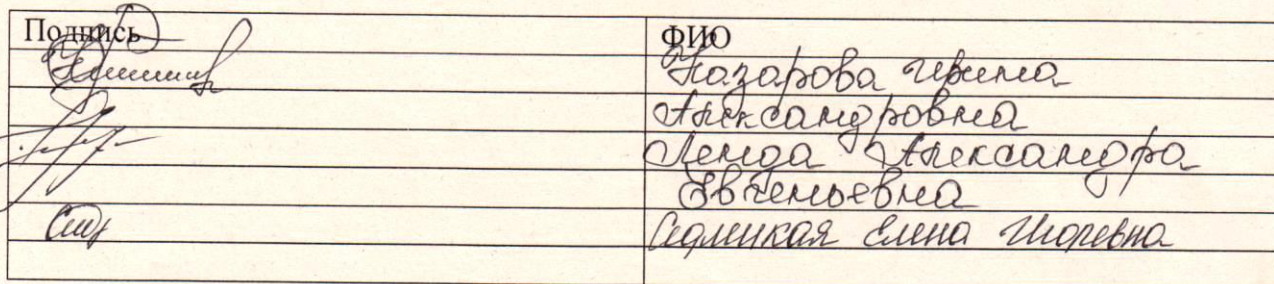 Подпись ФИО
Назарова Ирина
Александровна
Ленда Александра
Евгеньевна
Седлицкая Елена Игоревна